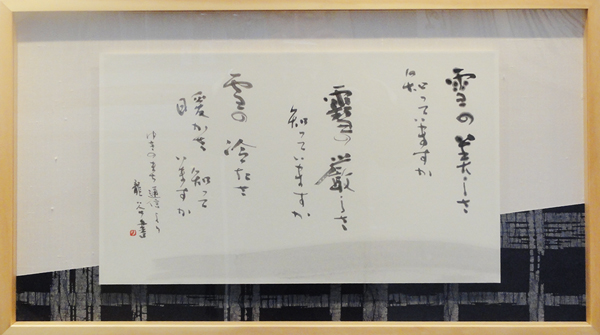 雪の美しさ
知っていますか
雪の厳しさ
知っていますか
雪の冷たさ
暖かさ 知って
いますか
ゆきのまち通信より
龍谷書